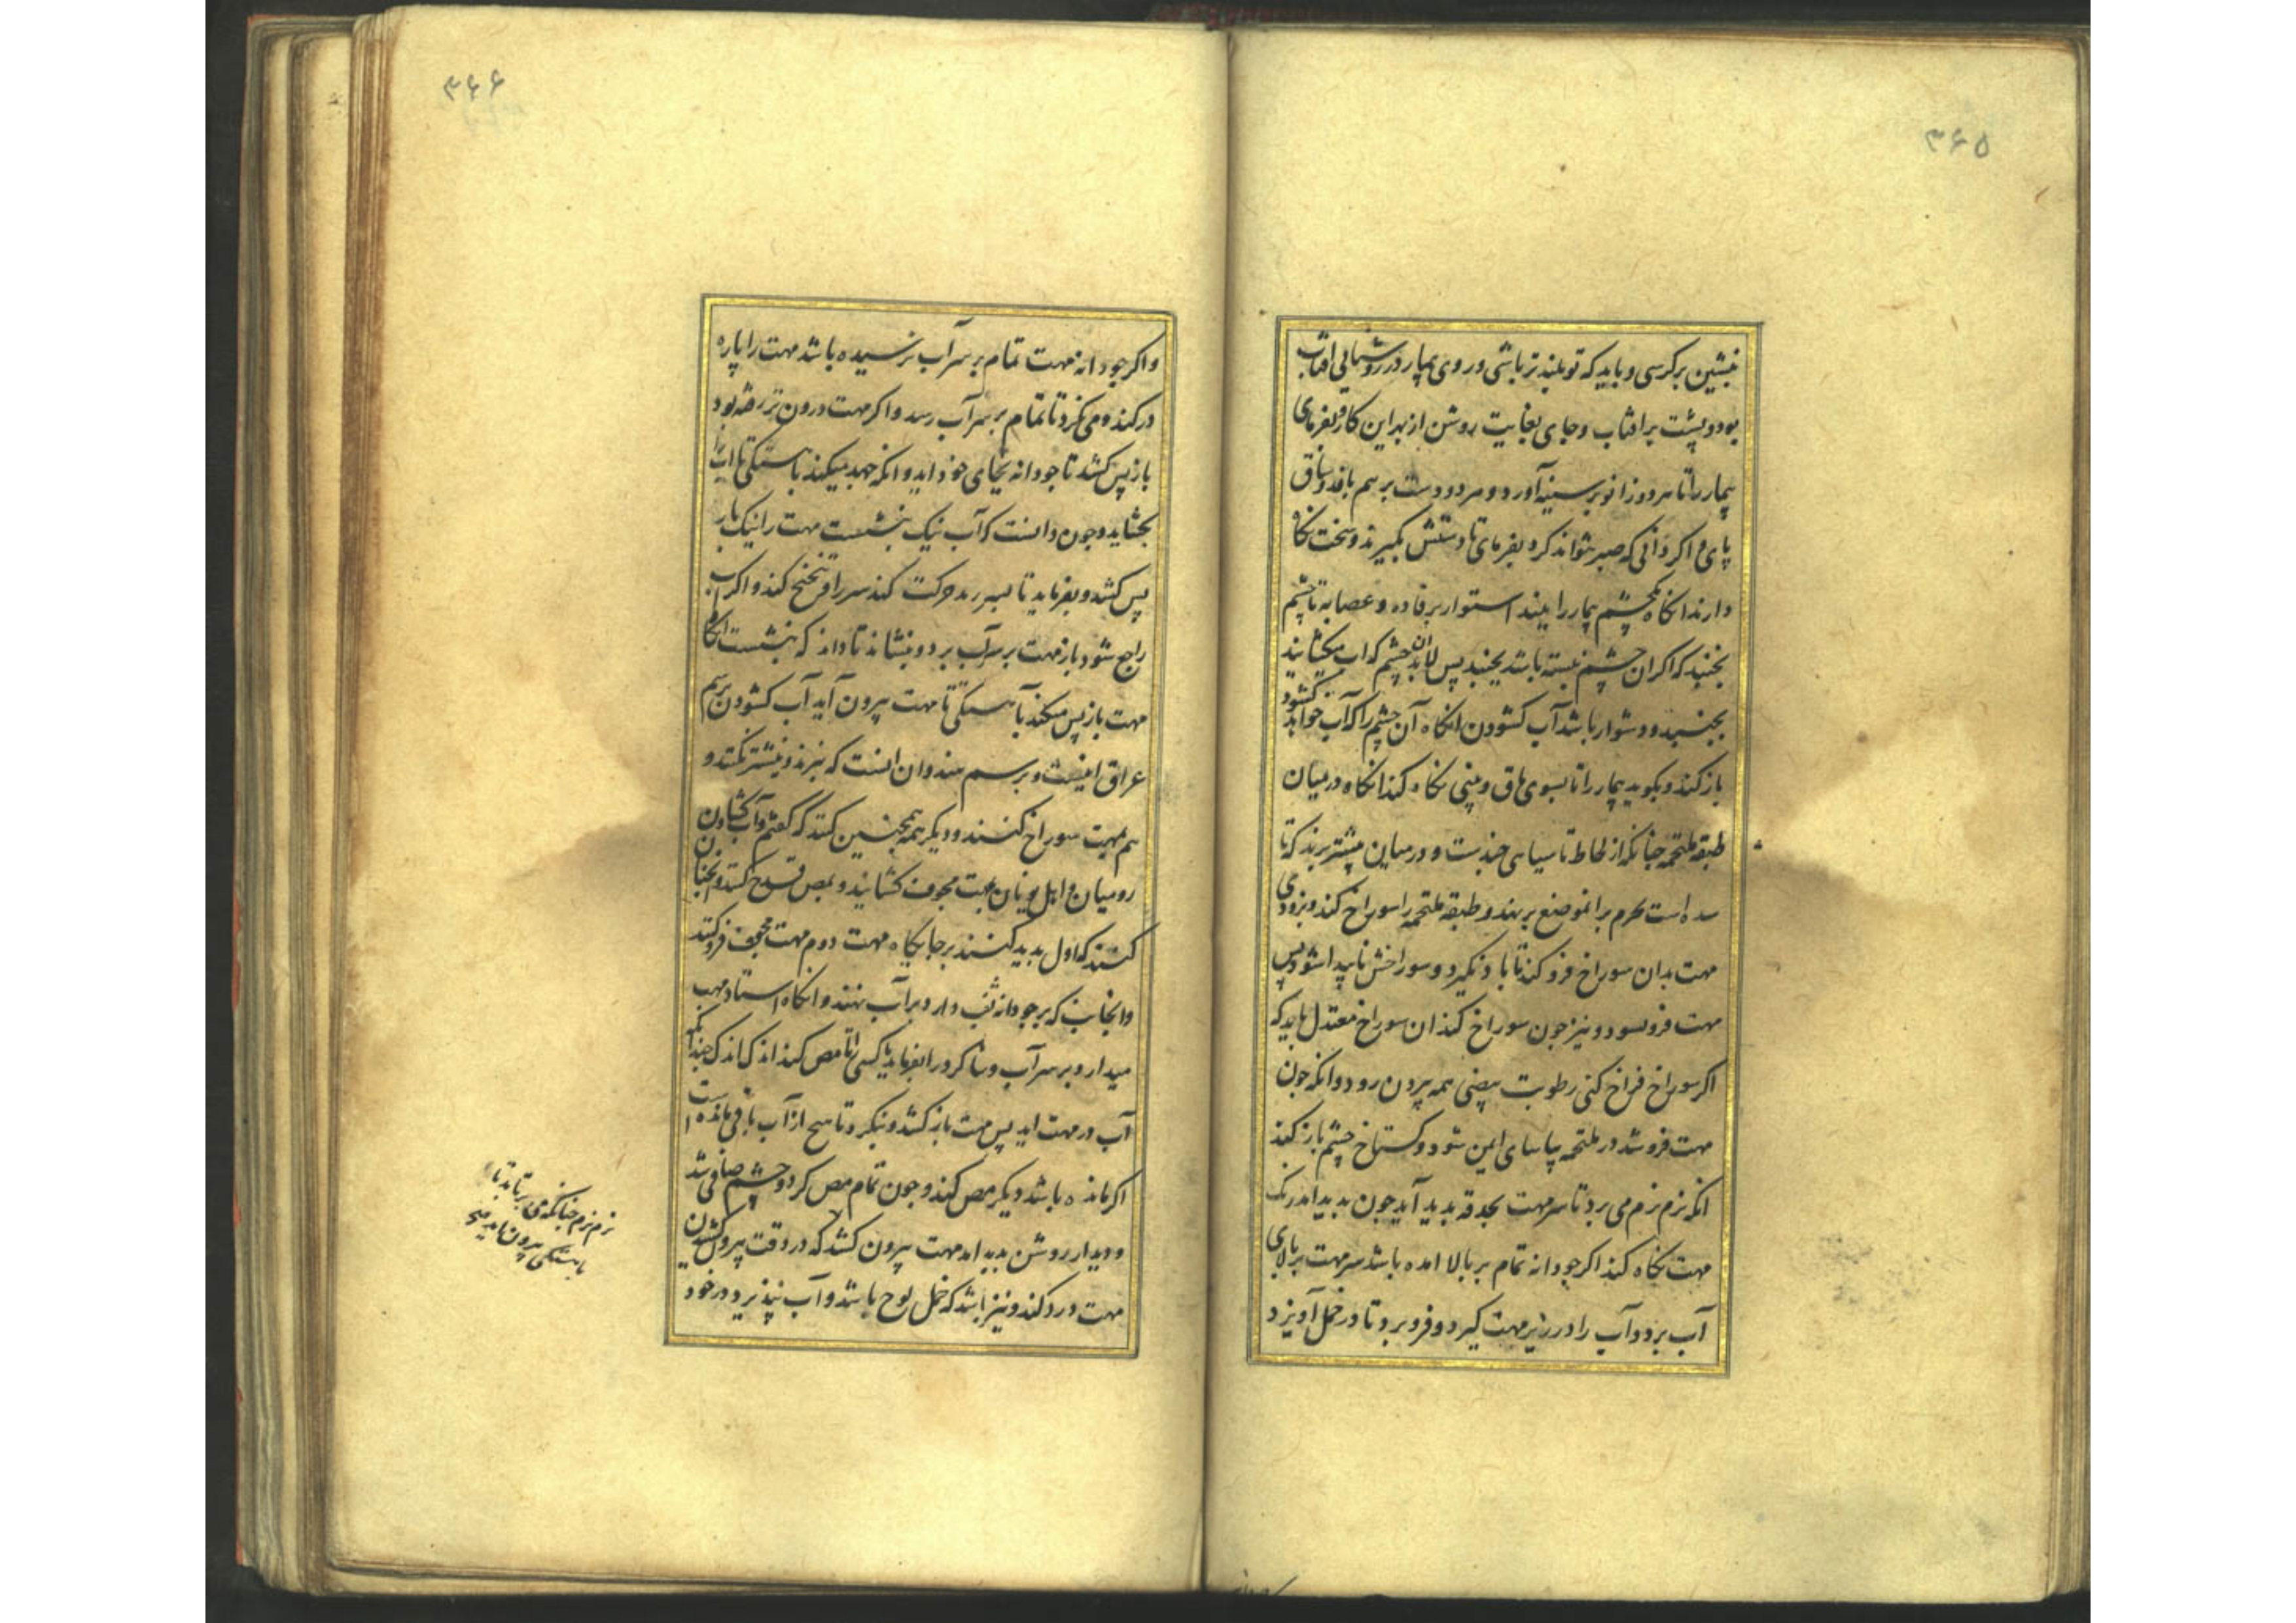 ۳۶۵
بنشین بر کرسی و باید که تو بلندتر باشی و روی بیمار در روشنایی افتاب
بود و پشت بر افتاب و جای بغایت روشن از بهر این کار و بفرمای
بیمار را تا هر دو زانو بر سینه آورد و هر دو دست بر هم بافد و ساق
پای و اکر دانی که صبر نتواند کرد بفرمای تا دستش بکیرند و سخت نکاه
دارند انکاه یک چشم بیمار را ببند استوار برفاده و عصابه تا چشم
نجنبد که اکر ان چشم نبسته باشد بجنبد پس لابد ان چشم که اب میکشایند
بجنبد و دشوار باشد آب کشودن انکاه آن چشم را که آب خواهد کشود
باز کند و بکوید بیمار را تا بسوی ماق و بینی نکاه کند انکاه در میان
طبقه ملتحمه چنانکه از لحاظ تا سیاهی چندست و در میان نیشتر بزند که تا
است بر انموضع بر نهد و طبقه ملتحمه را سوراخ کند و بزودی
مهت بدان سوراخ فرو کند تا باد نکیرد و سوراخش ناپیدا شود پس
مهت فرو و نیز جون سوراخ کند ان سوراخ معتدل باید که
اکر سوراخ فراخ کنی رطوبت بیضی همه بیرون رود و انکه جون
مهت فرو شد در ملتحمه بیاسای ایمن شود و کستاخ چشم باز کند
انکه نرم نرم می برد تا سر مهت بحدقه بدید آید جون بدید امد رنک
مهت نکاه کند اکر جودانه تمام بر بالا امده باشد سر مهت بر بالای
آب برد و آب را در زیر مهت کیرد و فرو برد تا در خمل آویزد
۳۶۶
و اکر جودانه مهت تمام بر سر آب نرسیده باشد مهت را پاره
در کند و می نکرد تا تمام بر سر آب رسد و اکر مهت درون تر رفته بود
باز پس کشد تا جودانه بجای خود اید و انکه جهد میکند باهستکی تا اب را
بنشاید و جون دانست که آب نیک بنشست مهت را نیک باز
پس کشد و بفرماید تا حرکت کند سر را و تنحنح کند و اکر اب
راجع شود باز مهت بر سر آب برد و بنشاند تا داند که بنشست انکاه
مهت باز پس میکند باهستکی تا مهت بیرون آید آب کشودن برسم
عراق اینست و برسم هندوان انست که نیشتر نکنند و
هم بمهت سوراخ کنند و دیکر همه همچنین کنند که کفتم و آب کشادن
رومیان و اهل یونان بمهت مجوف کشایند و بمص قدح کنند و انچنان
کنند که اول بدید کنند بر جایکاه مهت دوم مهت مجوف فرو کنند
و انجانب که بر جودانه ثقب دارد بر آب نهند و انکاه استاد مهت
میدارد بر سر آب و شاکرد را بفرماید یا کسی را تا مص کند اندک اندک چندانکه
آب در مهت اید پس مهت باز کشد و بنکرد تا هیچ از آب باقی مانده است
اکر مانده باشد دیکر مص کند و جون تمام مص کرد و چشم صافی شد
و دیدار روشن بدید امد مهت بیرون کشد که در وقت بیرون کشیدن
مهت درد کند و نیز باشد که خمل لوح باشد و آب نپذیرد و در خود
نرم نرم چنانکه می برتابد تا
باهستکی بیرون اید